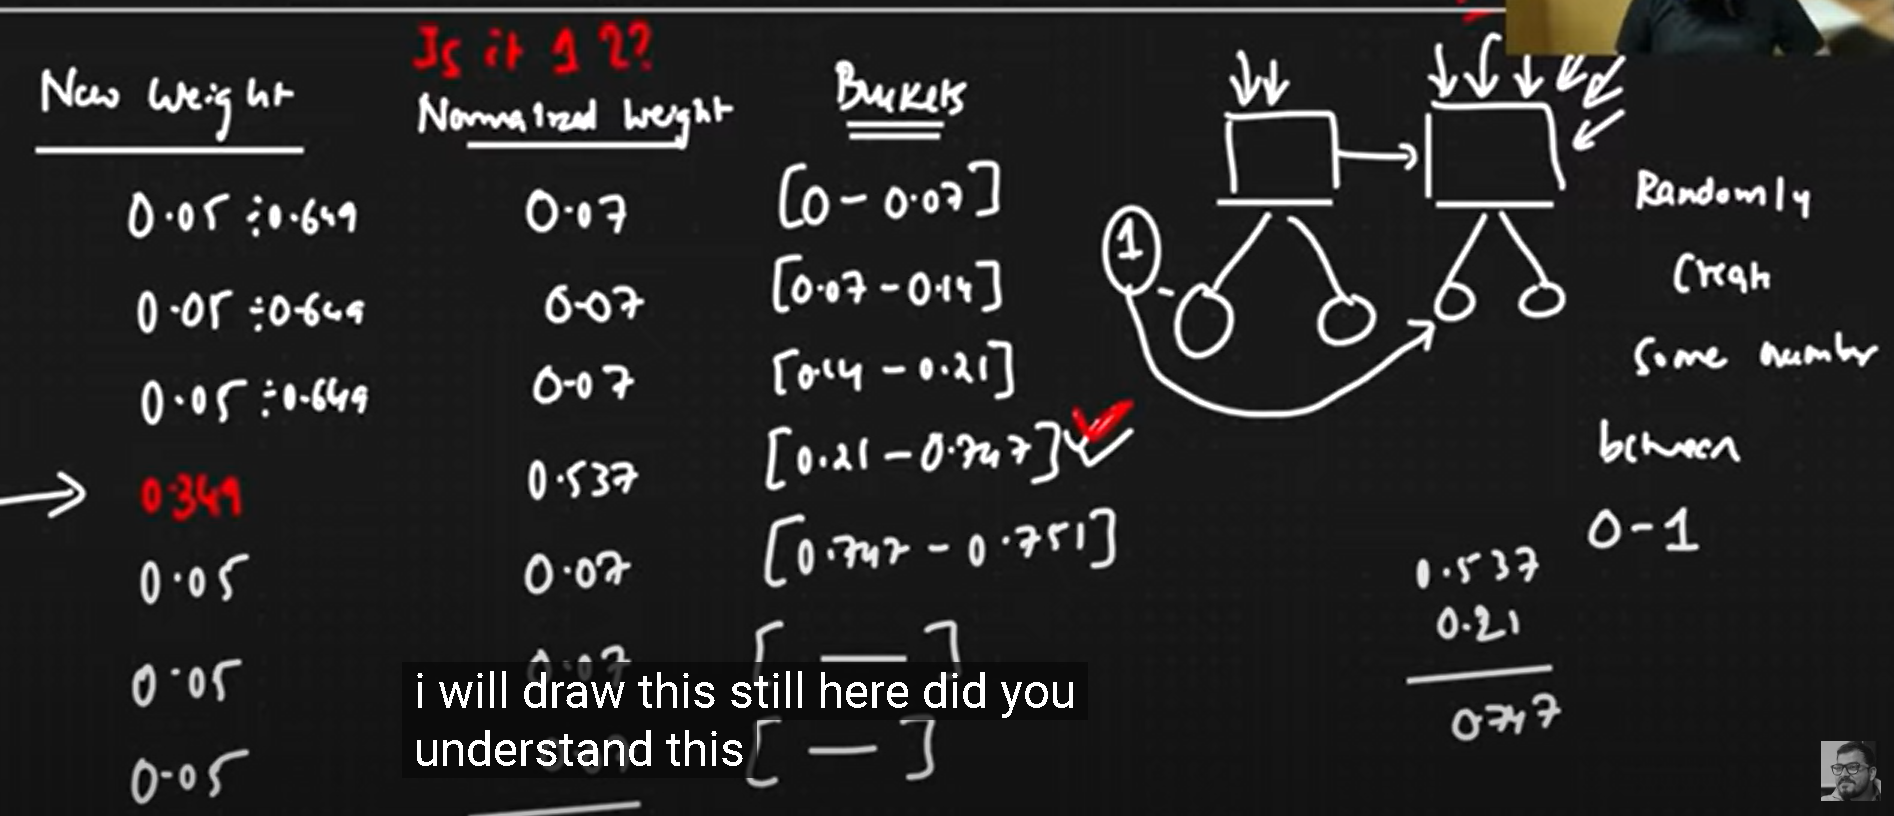 Is it 1 ??
New Weight Normalized Weight Buckets
0.05 ÷0.649 0.07 [0 - 0.07]
0.05 ÷0.649 0.07 [0.07 - 0.14]
0.05 ÷0.649 0.07 [0.14 - 0.21]
0.349 0.537 [0.21 - 0.747]
0.05 0.07 [0.747 - 0.751]
0.05 0.07 [ — ]
0.05 [ — ]
1
Randomly
Create
Some number
between
0-1
0.537
0.21
0.747
i will draw this still here did you
understand this